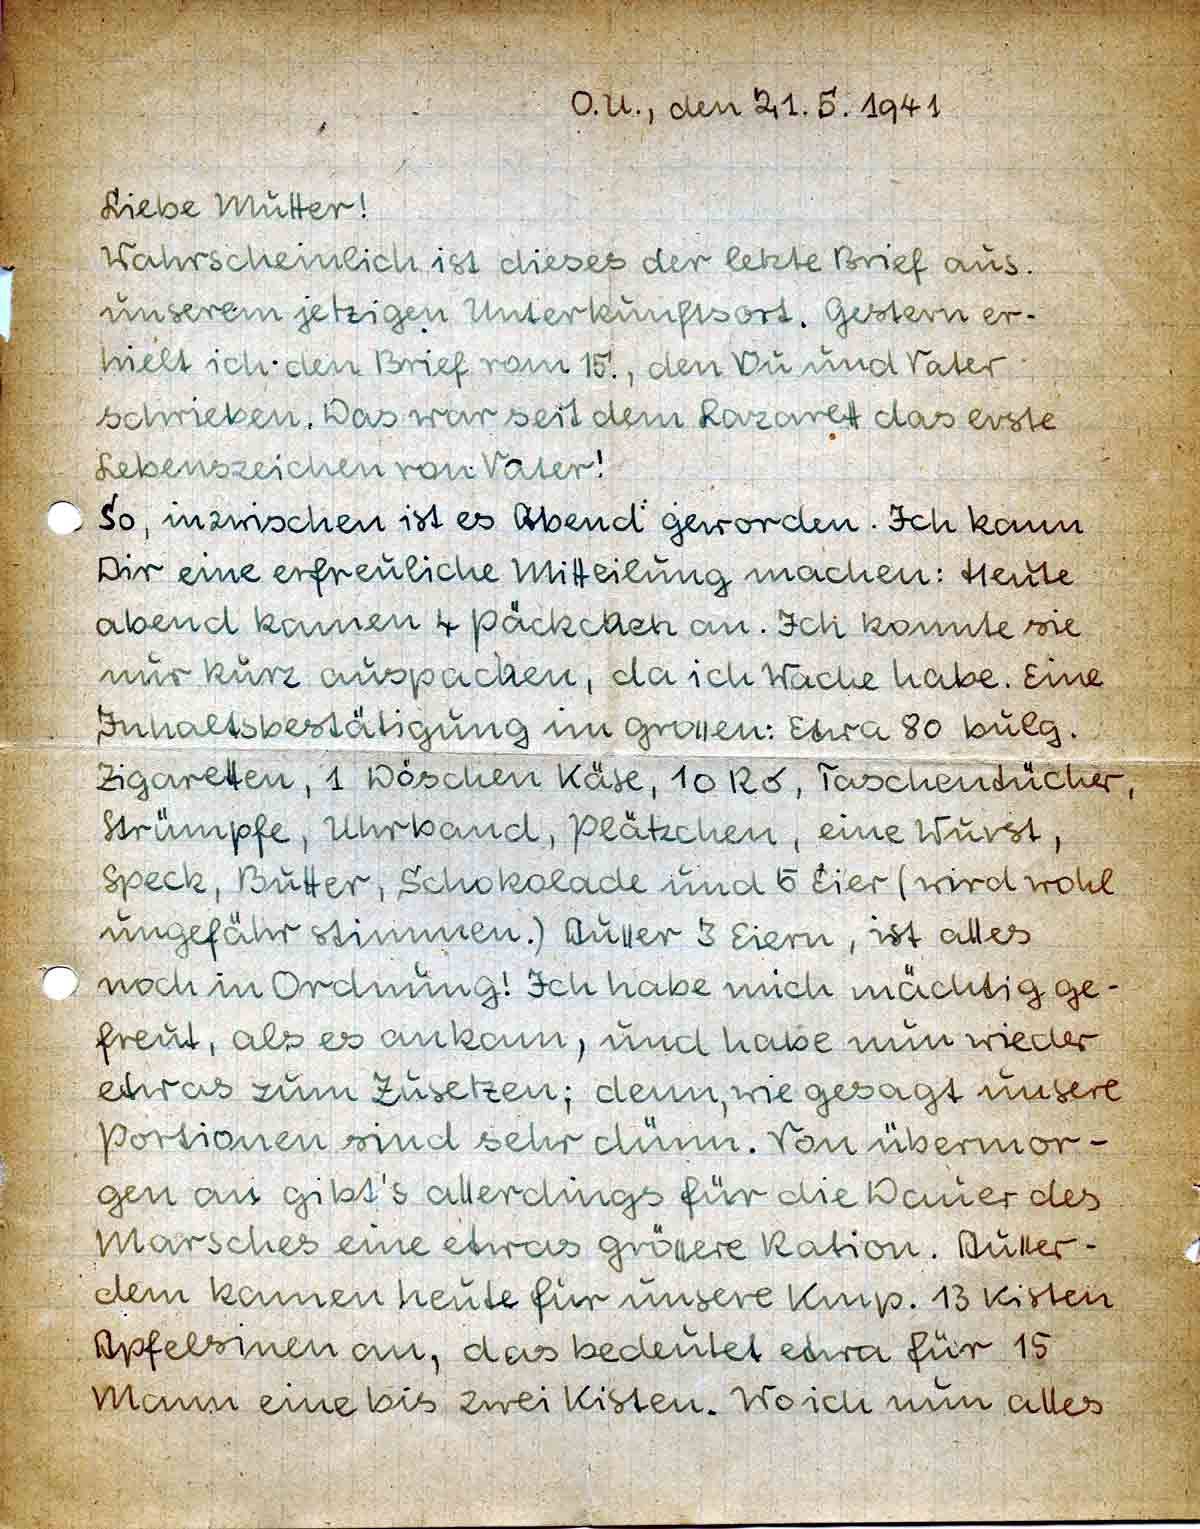 O.U., den 21.5.1941
Liebe Mutter!
Wahrscheinlich ist dieses der letzte Brief aus
unserem jetzigen Unterkunftsort. Gestern er-
hielt ich den Brief vom 15., den Du und Vater
schrieben. Das war seit dem Lazarett das erste
Lebenszeichen von Vater!
So, inzwischen ist es Abend geworden. Ich kann
Dir eine erfreuliche Mitteilung machen: Heute
abend kamen 4 Päckchen an. Ich konnte sie
nur kurz auspacken, da ich Wache habe. Eine
Inhaltsbestätigung im großen: Etwa 80 bulg.
Zigaretten, 1 Döschen Käse, 10 Taschentücher,
Strümpfe, Uhrband, Plätzchen, eine Wurst,
Speck, Butter, Schokolade und 5 Eier (wird wohl
ungefähr stimmen.) Außer 3 Eiern, ist alles
noch in Ordnung! Ich habe mich mächtig ge-
freut, als es ankam, und habe nun wieder
etwas zum Zusetzen; denn, wie gesagt unsere
Portionen sind sehr dünn. Von übermor-
gen an gibt's allerdings für die Dauer des
Marsches eine etwas größere Ration. Außer-
dem kamen heute für unsere Kmp. 13 Kisten
Apfelsinen an, das bedeutet etwa für 15
Mann eine bis zwei Kisten. Wo ich nun alles